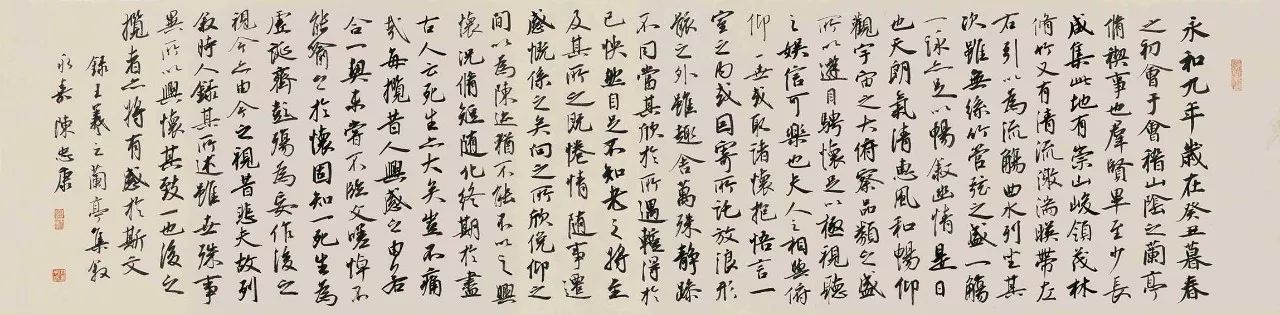 永和九年歲在癸丑暮春
之初會于會稽山陰之蘭亭
脩禊事也羣賢畢至少長
咸集此地有崇山峻領茂林
脩竹又有清流激湍暎帶左
右引以為流觴曲水列坐其
次雖無絲竹管弦之盛一觴
一詠亦足以暢敘幽情是日
也天朗氣清惠風和暢仰
觀宇宙之大俯察品類之盛
所以遊目騁懷足以極視聽
之娛信可樂也夫人之相與俯
仰一世或取諸懷抱悟言一
室之內或因寄所託放浪形
骸之外雖趣舍萬殊靜躁
不同當其欣於所遇輒得於
己怏然自足不知老之將至
及其所之既惓情隨事遷
感慨係之矣向之所欣俛仰之
間以為陳迹猶不能不以之興
懷況脩短隨化終期於盡
古人云死生亦大矣豈不痛
哉每攬昔人興感之由若
合一契未嘗不臨文嗟悼不
能喻之於懷固知一死生為
虛誕齊彭殤為妄作後之
視今亦由今之視昔悲夫故列
敘時人錄其所述雖世殊事
異所以興懷其致一也後之
攬者亦將有感於斯文
錄王羲之蘭亭集敘
永嘉陳忠康